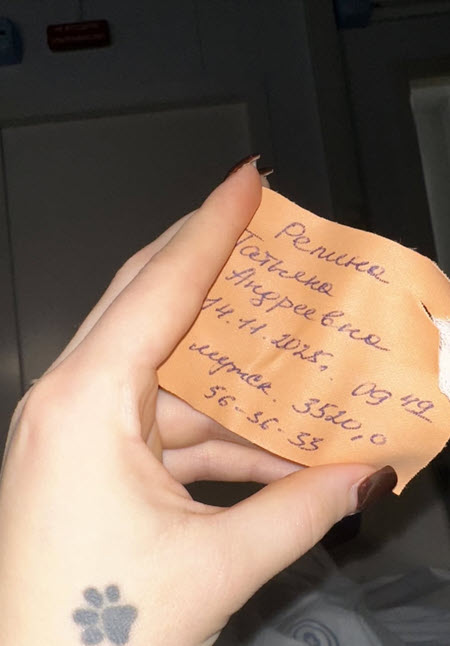 Репина
Татьяна
Андреевна
14.11.2025г. 09 49
мужск. 3520,0
56-36-33